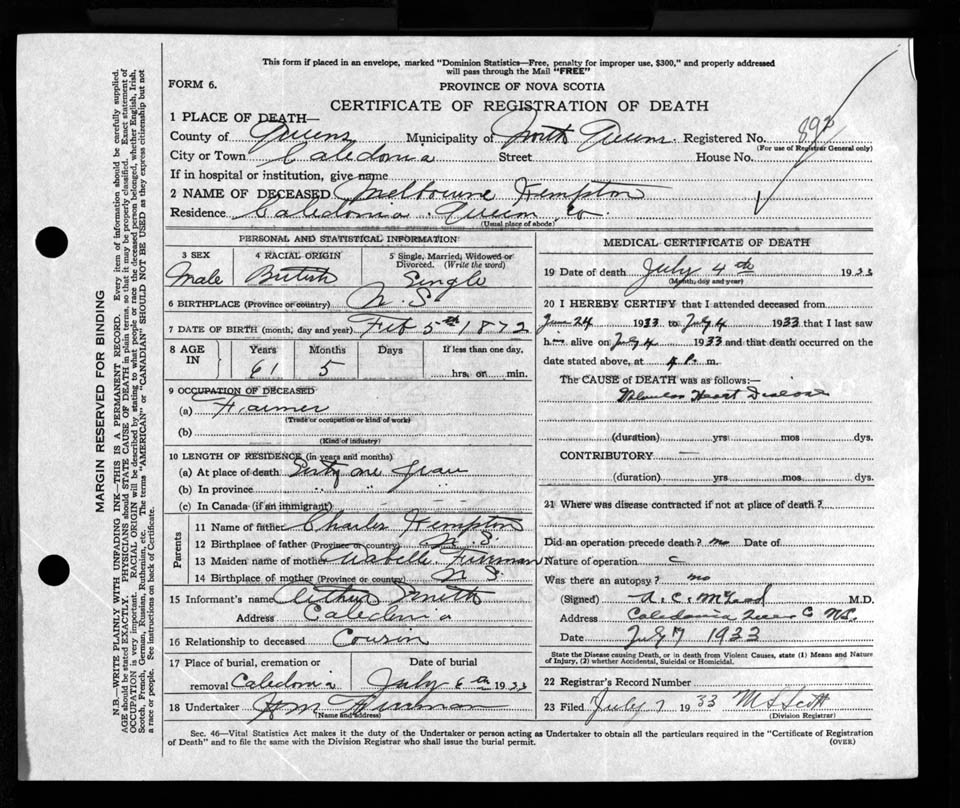 This form if placed in an envelope, marked "Dominion Statistics—Free, penalty for improper use, $300," and properly addressed
will pass through the Mail "FREE"
FORM 6.
PROVINCE OF NOVA SCOTIA
CERTIFICATE OF REGISTRATION OF DEATH
1 PLACE OF DEATH—
County of Queens Municipality of North Queens. Registered No. 892
(For use of Registrar General only)
City or Town Caledonia Street House No.
If in hospital or institution, give name
2 NAME OF DECEASED Melbourne Kempton
Residence Caledonia Queens Co.
(Usual place of abode)
PERSONAL AND STATISTICAL INFORMATION
3 SEX Male
4 RACIAL ORIGIN British
5 Single, Married, Widowed or Divorced. (Write the word) Single
6 BIRTHPLACE (Province or country) N. S
7 DATE OF BIRTH (month, day and year) Feb 5th 1872
8 AGE IN Years 61 Months 5 Days If less than one day, hrs. or min.
9 OCCUPATION OF DECEASED
(a) Farmer
(Trade or occupation or kind of work)
(b)
(Kind of industry)
10 LENGTH OF RESIDENCE (in years and months)
(a) At place of death Sixty one years
(b) In province " " "
(c) In Canada (if an immigrant)
Parents
11 Name of father Charles Kempton
12 Birthplace of father (Province or country) N. S.
13 Maiden name of mother
14 Birthplace of mother (Province or country) N S
15 Informant's name Smith
Address Caledonia
16 Relationship to deceased Cousin
17 Place of burial, cremation or removal Caledonia
Date of burial July 6th 1933
18 Undertaker
(Name and address)
MEDICAL CERTIFICATE OF DEATH
19 Date of death July 4th 1933
(Month, day and year)
20 I HEREBY CERTIFY that I attended deceased from
June 24 1933 to July 4 1933 that I last saw
him alive on July 4 1933 and that death occurred on the
date stated above, at 4 P. m.
The CAUSE of DEATH was as follows:—
Heart Disease
(duration) yrs mos dys.
CONTRIBUTORY —
(duration) yrs. mos. dys.
21 Where was disease contracted if not at place of death?
Did an operation precede death? no Date of
Nature of operation
Was there an autopsy? no
(Signed) A. C. McLeod M.D.
Address Caledonia Queens C NS.
Date July 7 1933
State the Disease causing Death, or in death from Violent Causes, state (1) Means and Nature
of Injury, (2) whether Accidental, Suicidal or Homicidal.
22 Registrar's Record Number
23 Filed July 7 1933 M S Scott
(Division Registrar)
Sec. 46—Vital Statistics Act makes it the duty of the Undertaker or person acting as Undertaker to obtain all the particulars required in the "Certificate of Registration
of Death" and to file the same with the Division Registrar who shall issue the burial permit. (OVER)
MARGIN RESERVED FOR BINDING
N.B.—WRITE PLAINLY WITH UNFADING INK—THIS IS A PERMANENT RECORD. Every item of information should be carefully supplied.
AGE should be stated EXACTLY. PHYSICIANS should STATE CAUSE OF DEATH in plain terms, so that it may be properly classified. Exact statement of
OCCUPATION is very important. RACIAL ORIGIN will be described by stating to what people or race the deceased person belonged, whether English, Irish,
Scotch, French, German, Russian, Ruthenian, etc. The terms "AMERICAN" or "CANADIAN" SHOULD NOT BE USED as they express citizenship but not
a race or people. See instructions on back of Certificate.